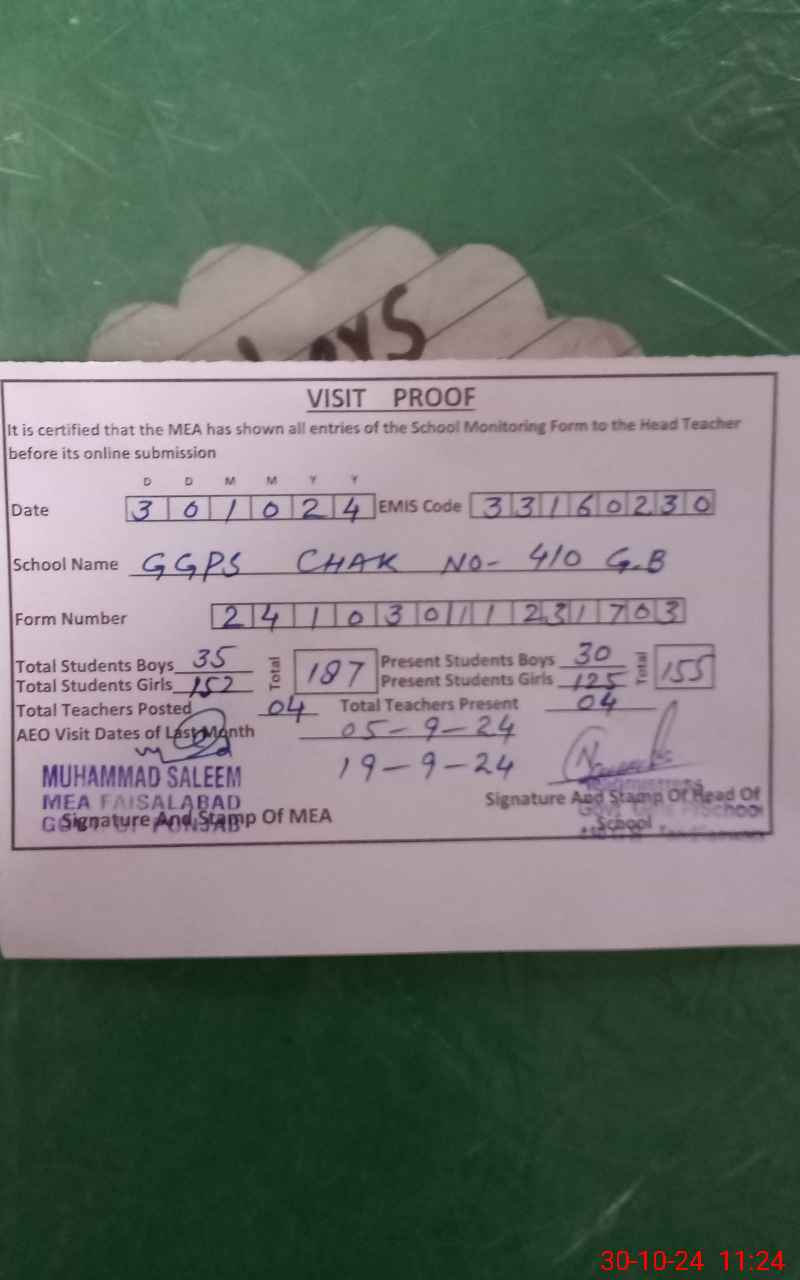 VISIT PROOF
It is certified that the MEA has shown all entries of the School Monitoring Form to the Head Teacher
before its online submission
D D M M Y Y
Date 3 0 1 0 2 4 EMIS Code 3 3 1 6 0 2 3 0
School Name GGPS CHAK NO- 410 G.B
Form Number 2 4 1 0 3 0 1 1 2 3 1 7 0 3
Total Students Boys 35 Total 187 Present Students Boys 30 Total 155
Total Students Girls 152 Present Students Girls 125
Total Teachers Posted 04 Total Teachers Present 04
AEO Visit Dates of Last Month 05-9-24
19-9-24
MUHAMMAD SALEEM
MEA FAISALABAD
GOVT OF PUNJAB
Signature And Stamp Of MEA
Signature And Stamp Of Head Of
School
30-10-24 11:24